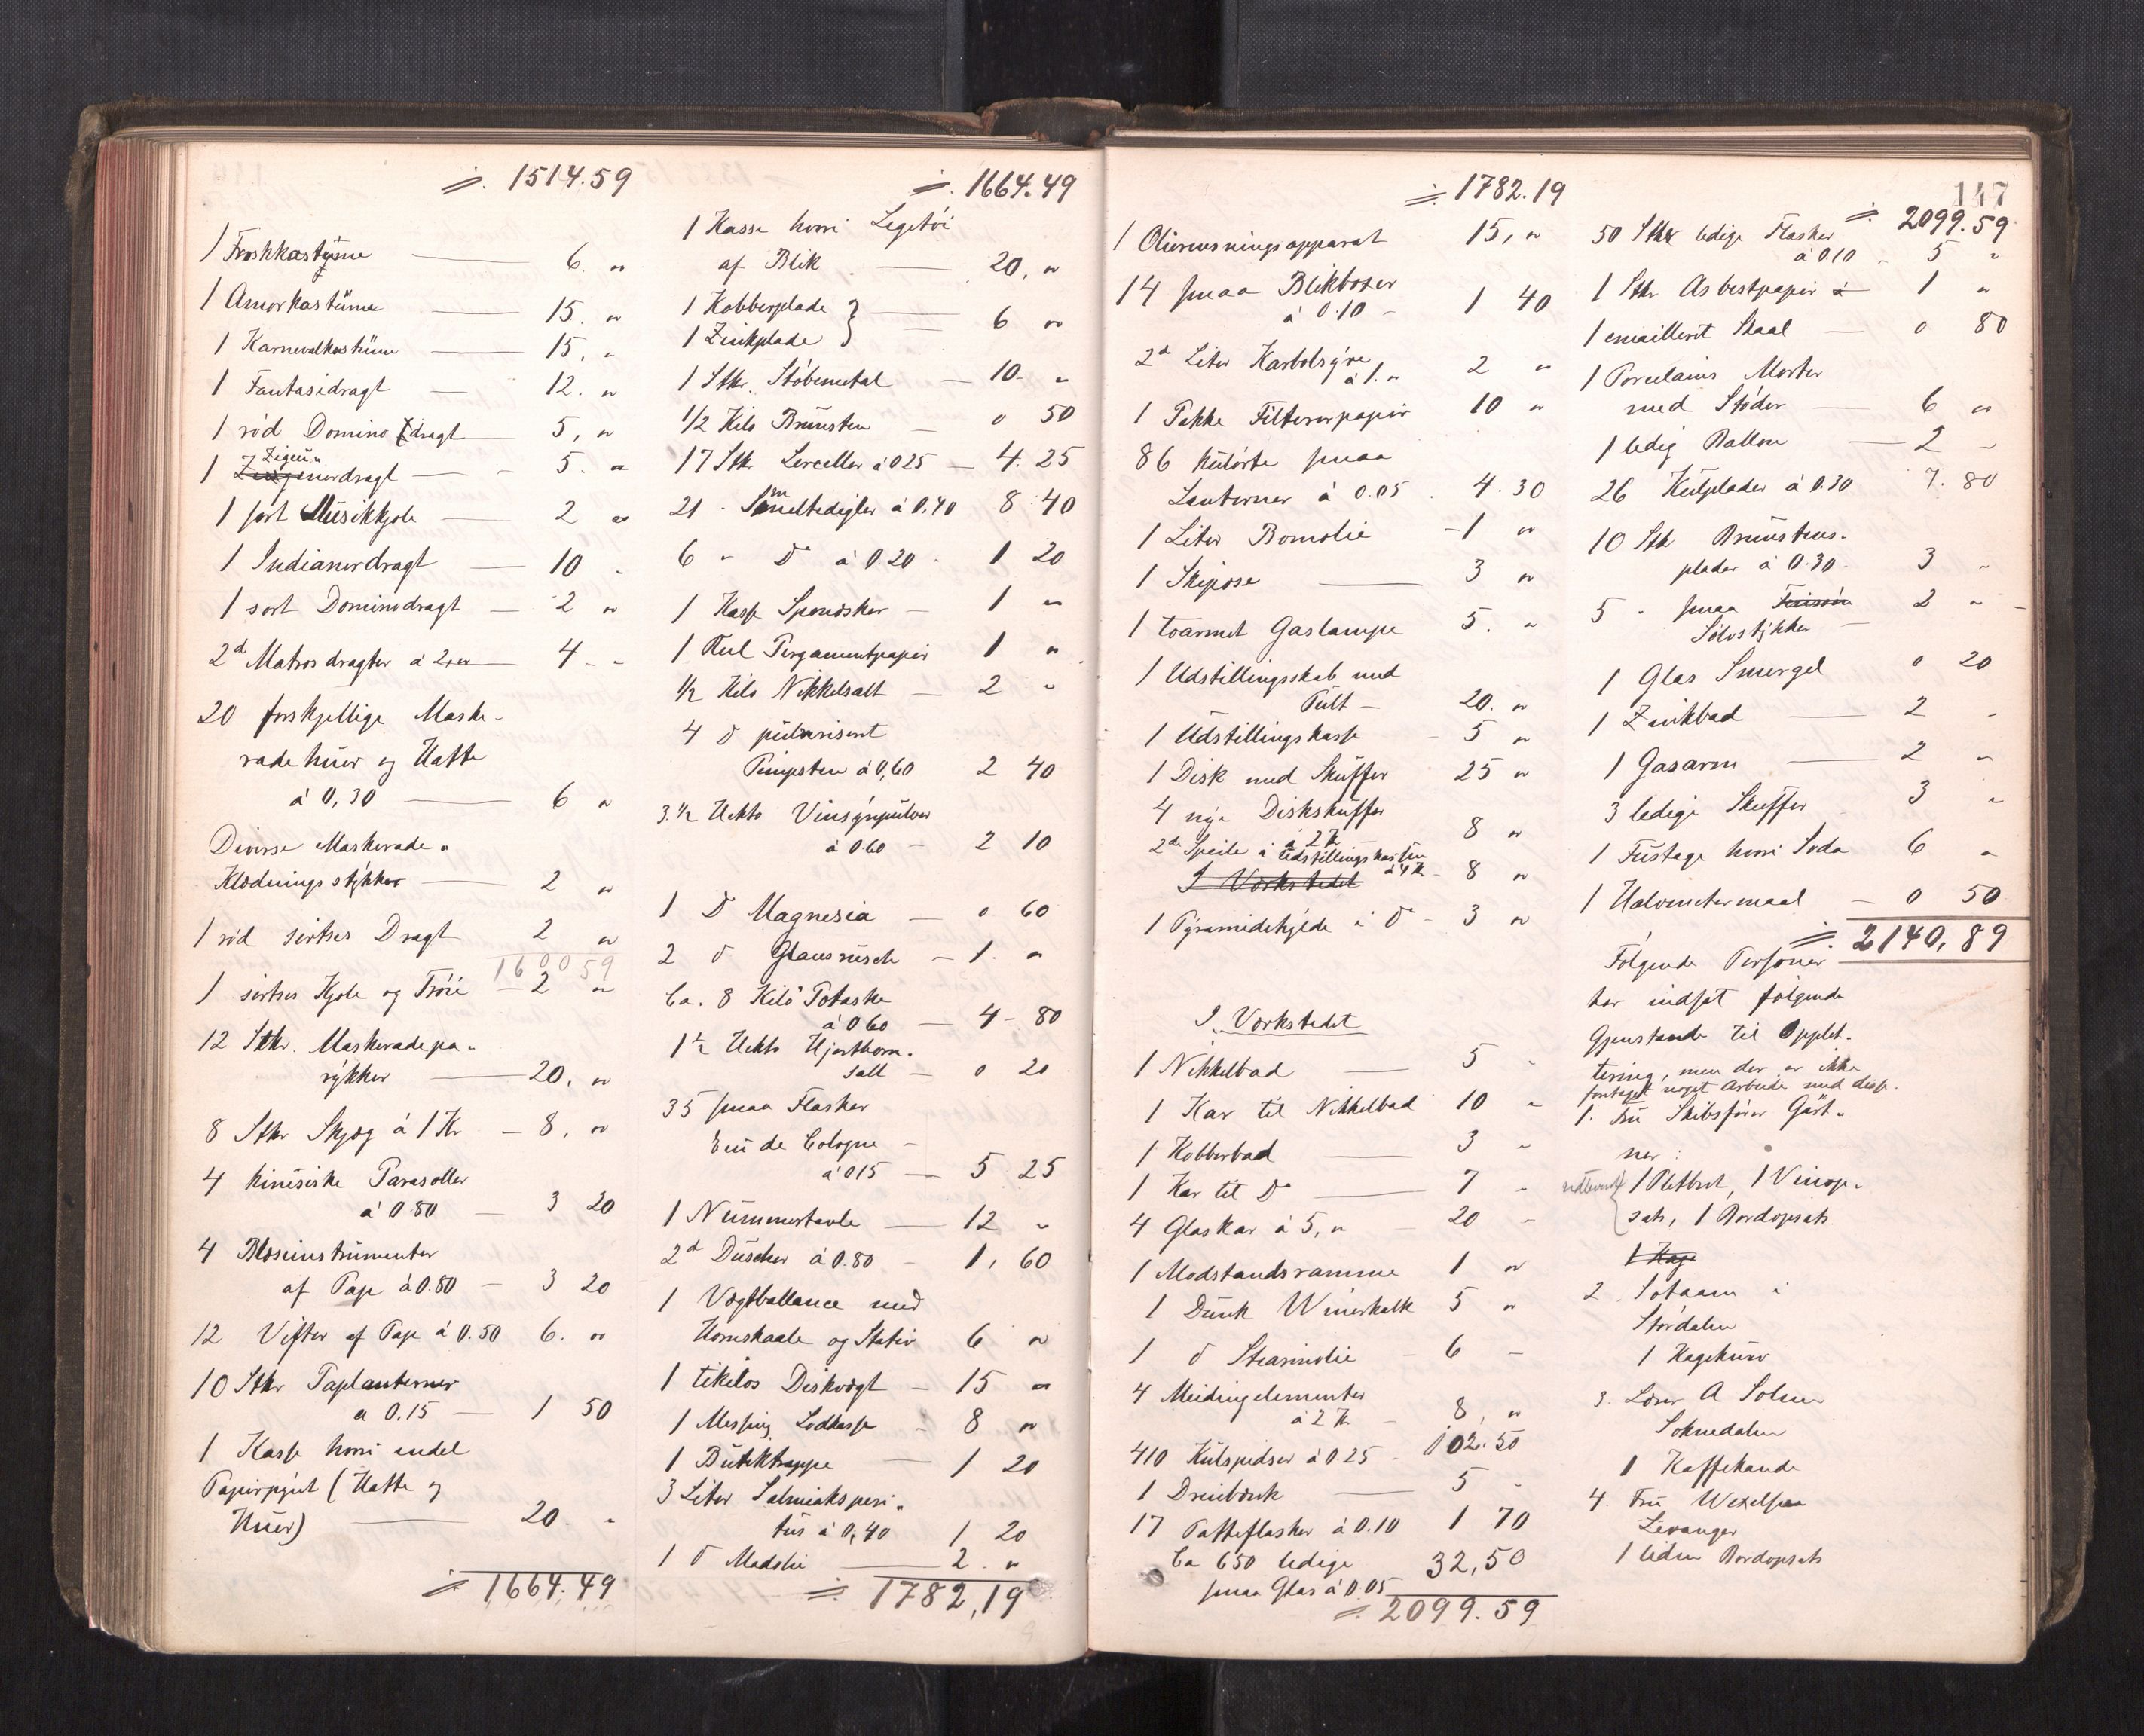 ∹ 1514.59
1 Froskkostyme — 6. "
1 Amorkostüme — 15. "
1 Karnevalkostüme — 15. "
1 Fantasidragt — 12. "
1 rød Domino dragt — 5, "
1 Zigeunerdragt — 5. "
1 sort Musikkjole — 2 "
1 Indianerdragt — 10 "
1 sort Dominodragt — 2 "
2d Matrosdragter à 2," — 4 - "
20 forskjellige Maske-
rade huer og Hatte
à 0,30 — 6 "
Diverse Maskerade-
Klædningsstykker — 2 "
1 rød sirtses Dragt 2 "
1600 59
1 sirtses Kjole og Trøie — 2 "
12 Stkr. Maskeradepa-
rykker — 20. "
8 Stkr Skjæg à 1 Kr — 8, "
4 kinesiske Parasoller
à 0.80 — 3 20
4 Blæseinstrumenter
af Pap à 0.80 — 3 20
12 Vifter af Pap à 0.50 6. "
10 Stkr Paplanterner
à 0,15 — 1 50
1 Kasse hvori endel
Papirpynt (Hatte og
Huer) — 20. "
∹ 1664.49
∹ 1664.49
1 Kasse hvori Legetøi
af Blik — 20, "
1 Kobberplade } — 6 "
1 Zinkplade
1 Stkr. Støbemetal — 10. "
1/2 Kilo Brunsten — 0 50
17 Stkr Lerceller à 0.25 — 4.25
21 - Smeltedigler à 0.40 8.40
6 - Do à 0.20 - 1 20
1 Kasse Spondsker — 1 "
1 Rul Pergamentpapir 1 "
1/2 Kilo Nikkelsalt — 2 "
4 do pulveriseret
Pimpsten à 0,60 2 40
3.1/2 Hekto Vinsyrepulver
à 0.60 — 2 10
1 Do Magnesia — 0 60
2 do Glansrusch — 1. "
Ca. 8 Kilo Potaske
à 0.60 — 4 - 80
1 1/2 Hekto Hjorthorn-
salt — 0 20
35 smaa Flasker
Eau de Cologne —
à 0.15 — 5 25
1 Nummertavle — 12 "
2d Duscher à 0.80 — 1, 60
1 Vægtballance med
Hornskaale og Stativ 6 "
1 tikilos Diskvægt — 15 "
1 Messing Lodkasse — 8 "
1 Butiktrappe — 1 20
3 Liter Salmiakspiri-
tus à 0,40 1 20
1 do Madolie — 2. "
∹ 1782,19
∹ 1782.19
1 Olierensningsapparat 15, "
14 smaa Blikboxer
à 0.10 — 1 40
2d Liter Karbolsyre
à 1." 2 "
1 Pakke Filtrerpapir 10 "
86 kulørte smaa
Lanterner à 0.05. 4.30
1 Liter Bomolie — 1 "
1 Skipose — 3 "
1 toarmet Gaslampe 5. "
1 Udstillingsskab med
Pult — 20. "
1 Udstillingskasse — 5 "
1 Disk med Skuffer 25 "
4 nye Diskskuffer
à 2 Kr 8 "
2de Speile i Udstillingskassen
à 4 Kr — 8 "
I Værkstedet
1 Pyramidehylde i Do — 3 "
I Værkstedet
1 Nikkelbad — 5 "
1 Kar til Nikkelbad 10 "
1 Kobberbad — 3 "
1 Kar til Do — 7 "
4 Glaskar à 5, " — 20 "
1 Modstandsramme 1 "
1 Dunk Winerkalk 5 "
1 do Stearinolie — 6 —
4 Meidingelementer
à 2 Kr — 8, "
410 Kulspidser à 0.25 — 102.50
1 Dreiebænk — 5 "
17 Patteflasker à 0.10 1 70
Ca 650 ledige 32,50
smaa Glas à 0.05
∹ 2099.59
147
∹ 2099.59
50 Stkr ledige Flasker
à 0.10 - 5 "
1 Stkr Asbestpapir — 1 "
1 emailleret Skaal — 0 80
1 Porcelains Morter
med Støder — 6 "
1 ledig Ballon — 2 —
26 Kulplader à 0.30 7.80
10 Stk Brunstens-
plader à 0.30 3 "
5 - smaa 2 "
Sølvstykker —
1 Glas Smergel 0 20
1 Zinkbad — 2 "
1 Gasarm — 2 "
3 ledige Skuffer 3 "
1 Fustage hvori Soda 6 "
1 Halvmetermaal — 0 50
∹ 2140,89
Følgende Personer
har indsat følgende
Gjenstande til Opplet-
tering, men der er ikke
foretaget noget Arbeide med disse.
1. Fru Skibsfører Gärt-
ner:
udleveret { 1 Pletbret, 1 Vinop-
sats, 1 Bordopsats
1 Kage
2. i
Størdalen
1 Kagekurv
3. Lærer A Solem
Soknedalen
1 Kaffekande
4. Fru Wexelsen
Levanger
1 liden Bordopsats